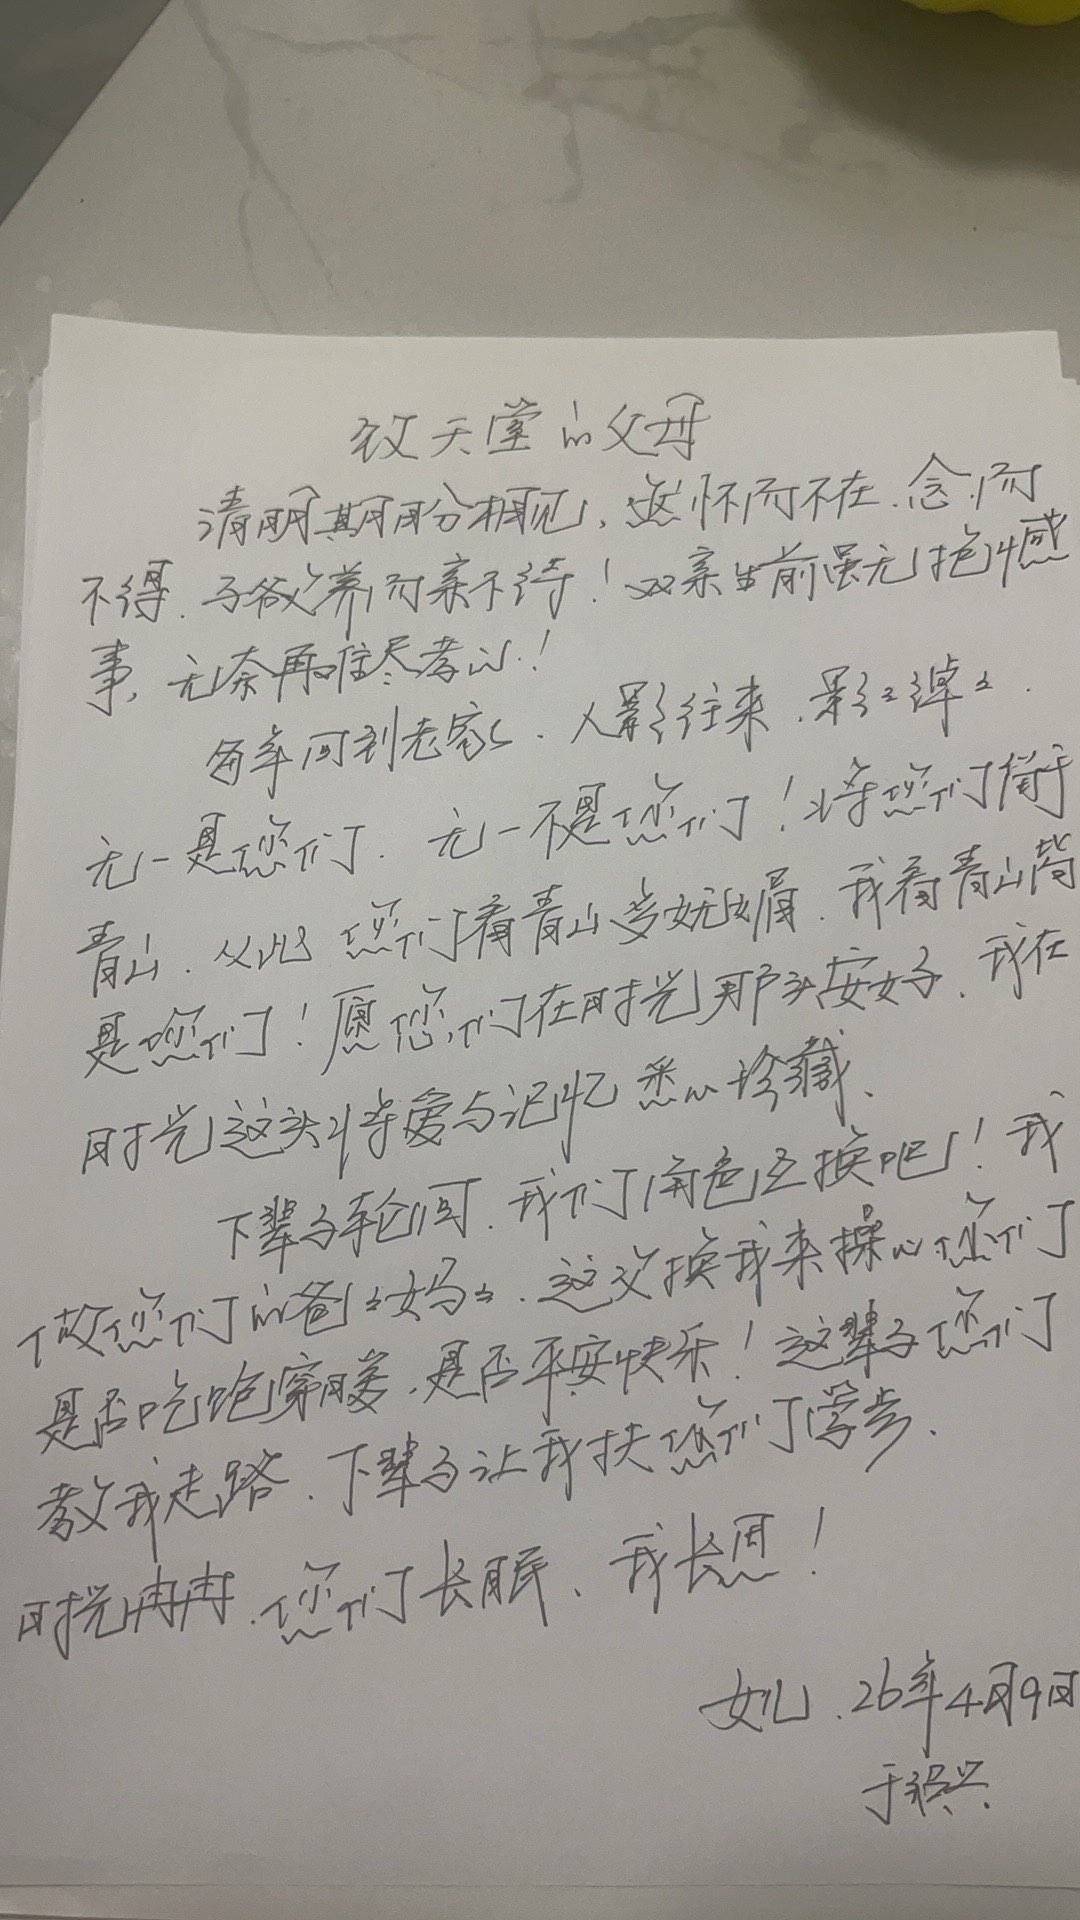 致天堂的父母
清明期盼相见、悠怀而不在、念而
不得、子欲养而亲不待！双亲生前虽无抱憾
事、无奈再难尽孝心！
每年回到老家、人影往来、影影绰绰、
无一是您们、无一不是您们！将您们僃于
青山、从此您们看青山多妩媚、我看青山皆
是您们！愿您们在时光那头安好、我在
时光这头将爱与记忆悉心珍藏、
下辈子轮回、我们角色互换吧！我
做您们的爸爸妈妈、这次换我来操心您们
是否吃饱穿暖、是否平安快乐！这辈子您们
教我走路、下辈子让我扶您们学步、
时光冉冉、您们长眠、我长思！
女儿、26年4月9日
于兴